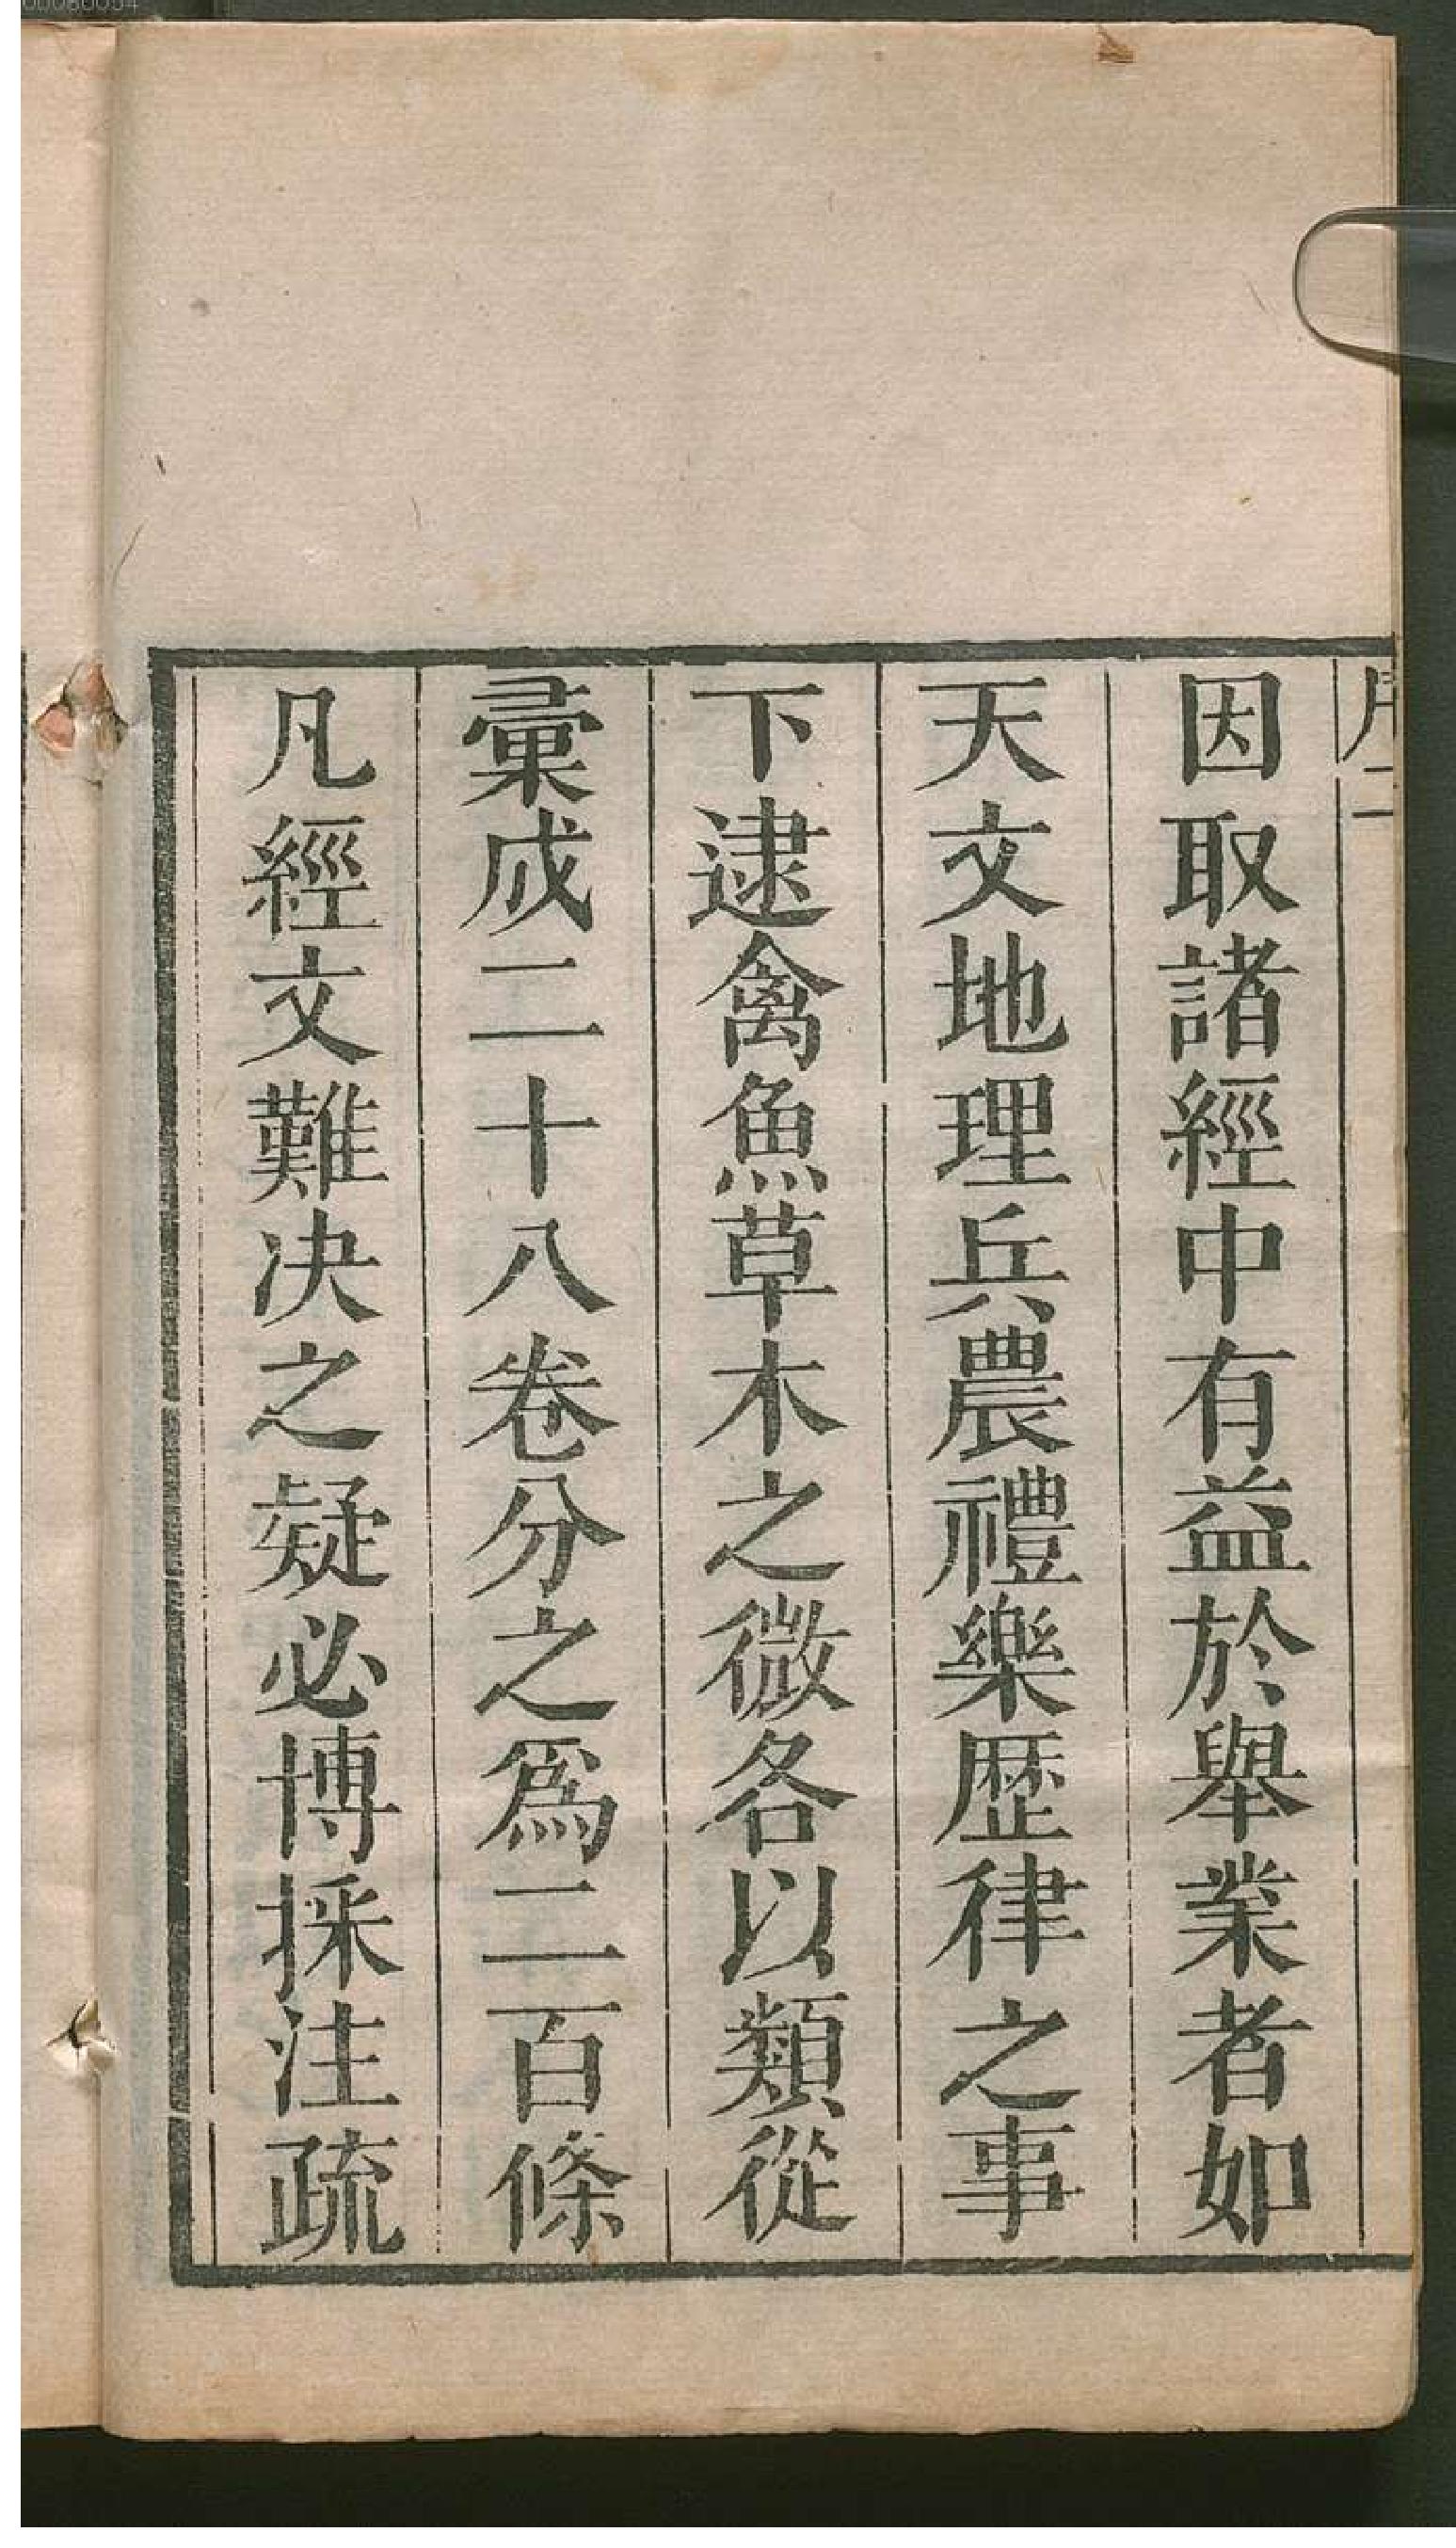 序二
因取諸經中有益於舉業者如
天文地理兵農禮樂歴律之事
下逮禽魚草木之微各以類從
彙成二十八卷分之爲二百條
凡經文難决之疑必博採注疏